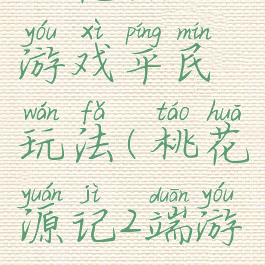 yóu xì píng mín
游戏平民
wán fǎ táo huā
玩法(桃花
yuán jì duān yóu
源记2端游